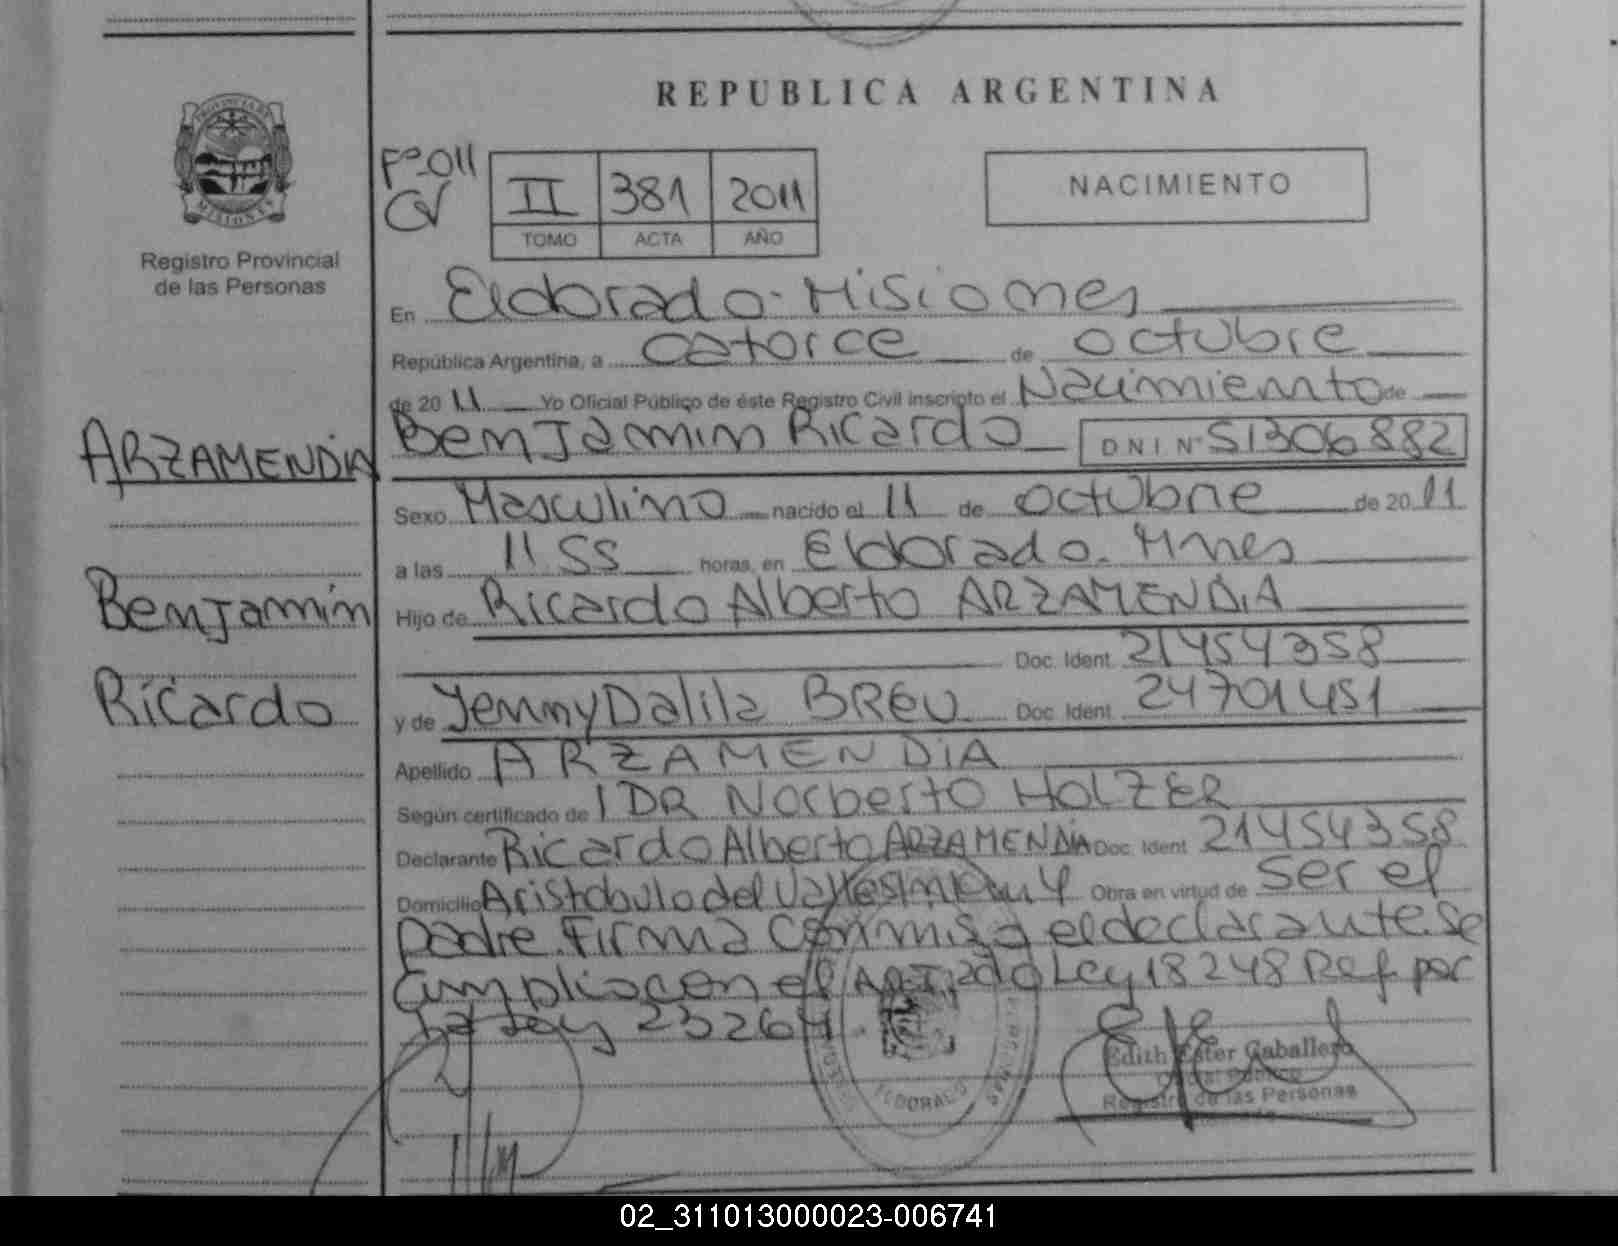 REPUBLICA ARGENTINA
PROVINCIA DE
MISIONES
Registro Provincial
de las Personas
Fº 011
II 381 2011
TOMO ACTA AÑO
NACIMIENTO
En Eldorado - Misiones
República Argentina, a catorce de octubre
de 20 11 Yo Oficial Público de éste Registro Civil inscripto el Nacimiento de
ARZAMENDIA
Benjamin Ricardo DNI Nº 51306882
Sexo Masculino nacido el 11 de octubre de 20 11
a las 11.55 horas, en Eldorado. Mnes
Benjamín
Hijo de Ricardo Alberto ARZAMENDIA
Doc. Ident. 21454358
Ricardo
y de Jenny Dalila BREU Doc. Ident. 24701451
Apellido ARZAMENDIA
Según certificado de DR Norberto HOLZER
Declarante Ricardo Alberto ARZAMENDIA Doc. Ident 21454358
Domicilio Aristobulo del Valle Obra en virtud de Ser el
padre. Firma conmigo el declarante. Se
cumplio con el Art. 2do Ley 18248 Ref por
la Ley 23264
Edith Ester Caballero
Oficial Público
Registro de las Personas
ELDORADO
02_311013000023-006741